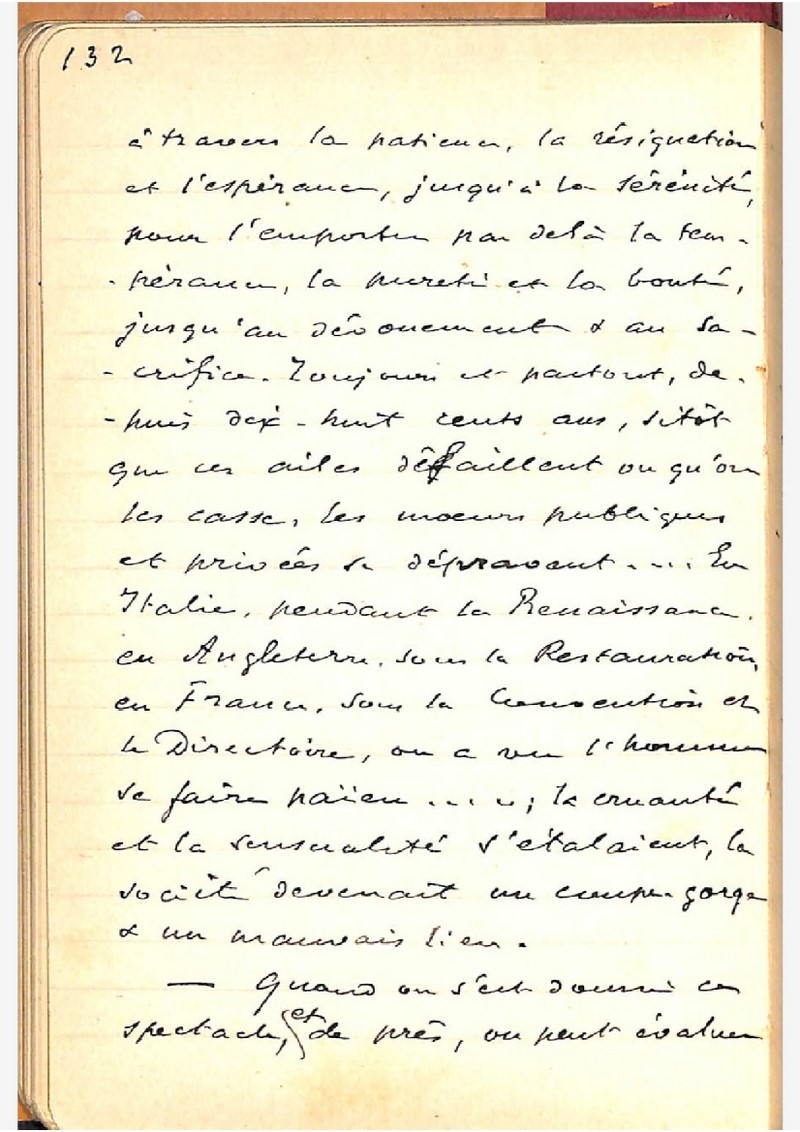 132
à travers la patience, la résignation
et l'espérance, jusqu'à la sérénité,
pour l'emporter par delà la tem-
- pérance, la pureté et la bonté,
jusqu'au dévouement & au sa-
- crifice. Toujours et partout, de-
- puis dix-huit cents ans, sitôt
que ces ailes défaillent ou qu'on
les casse, les mœurs publiques
et privées se dépravent.... En
Italie, pendant la Renaissance,
en Angleterre, sous la Restauration,
en France, sous la Convention et
le Directoire, on a vu l'homme
se faire païen .....; la cruauté
et la sensualité s'étalaient, la
société devenait un coupe-gorge
& un mauvais lieu.
— Quand on s'est donné ce
spectacle, et de près, on peut évaluer